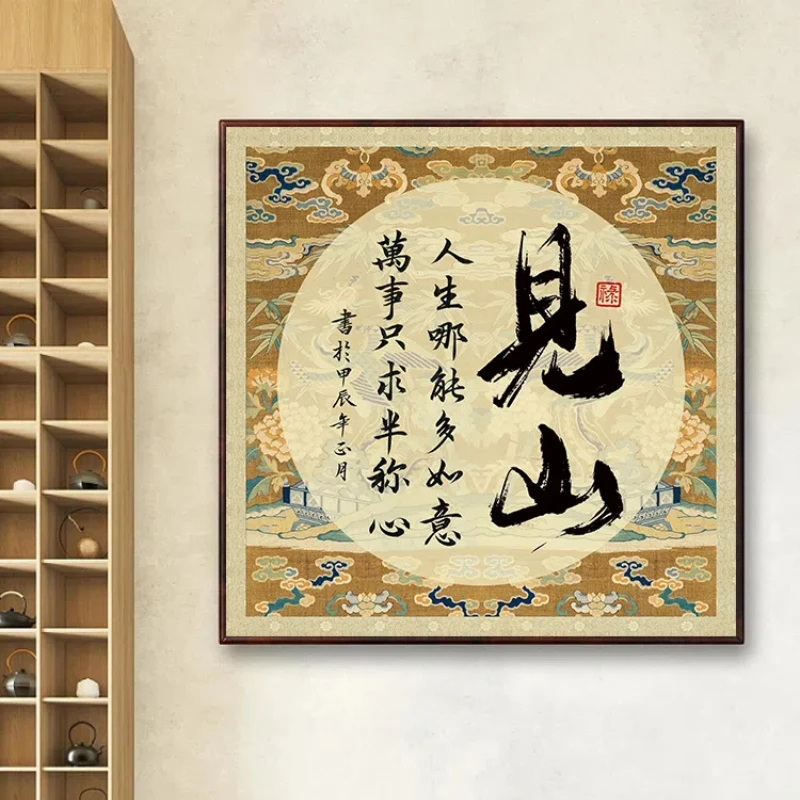 見山
人生哪能多如意
萬事只求半称心
書於甲辰年正月
禄